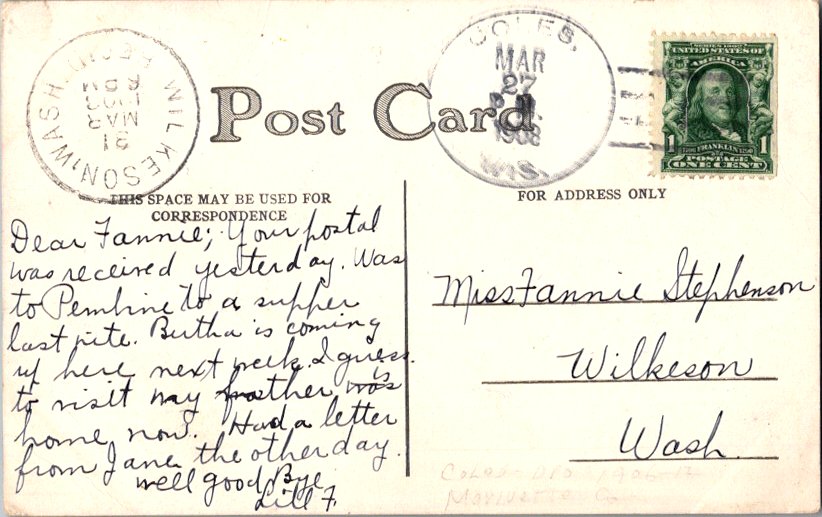 WILKESON, WASH.
REC'D
31
MAR
1908
Post Card
COLES.
MAR
27
1908
WIS.
SERIES 1902
UNITED STATES OF
AMERICA
1 FRANKLIN 1
POSTAGE
ONE CENT
THIS SPACE MAY BE USED FOR
CORRESPONDENCE
FOR ADDRESS ONLY
Dear Fannie; Your postal
was received yesterday. Was
to Pembine to a supper
last nite. Birtha is coming
up here next week I guess.
to visit my father is
home now. Had a letter
from Jane the other day.
well good Bye
Lill F.
Miss Fannie Stephenson
Wilkeson
Wash.
Coles
Marinette Co